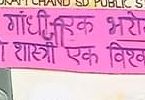 RAM CHAND SD PUBLIC S
गांधी एक भरो
शास्त्री एक विश्व